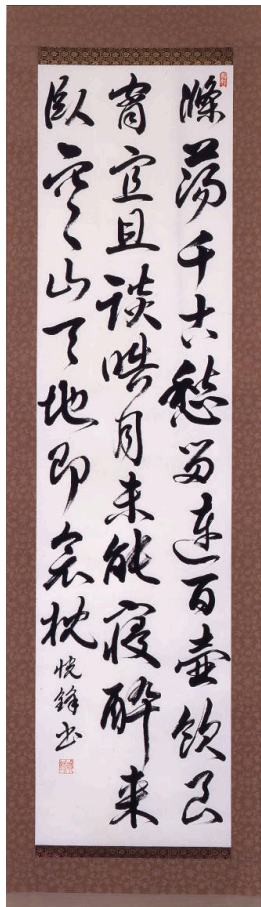 滌蕩千古愁留連百壺飲良
宵宜且談皓月未能寝酔来
臥空山天地即衾枕
悦鋒书